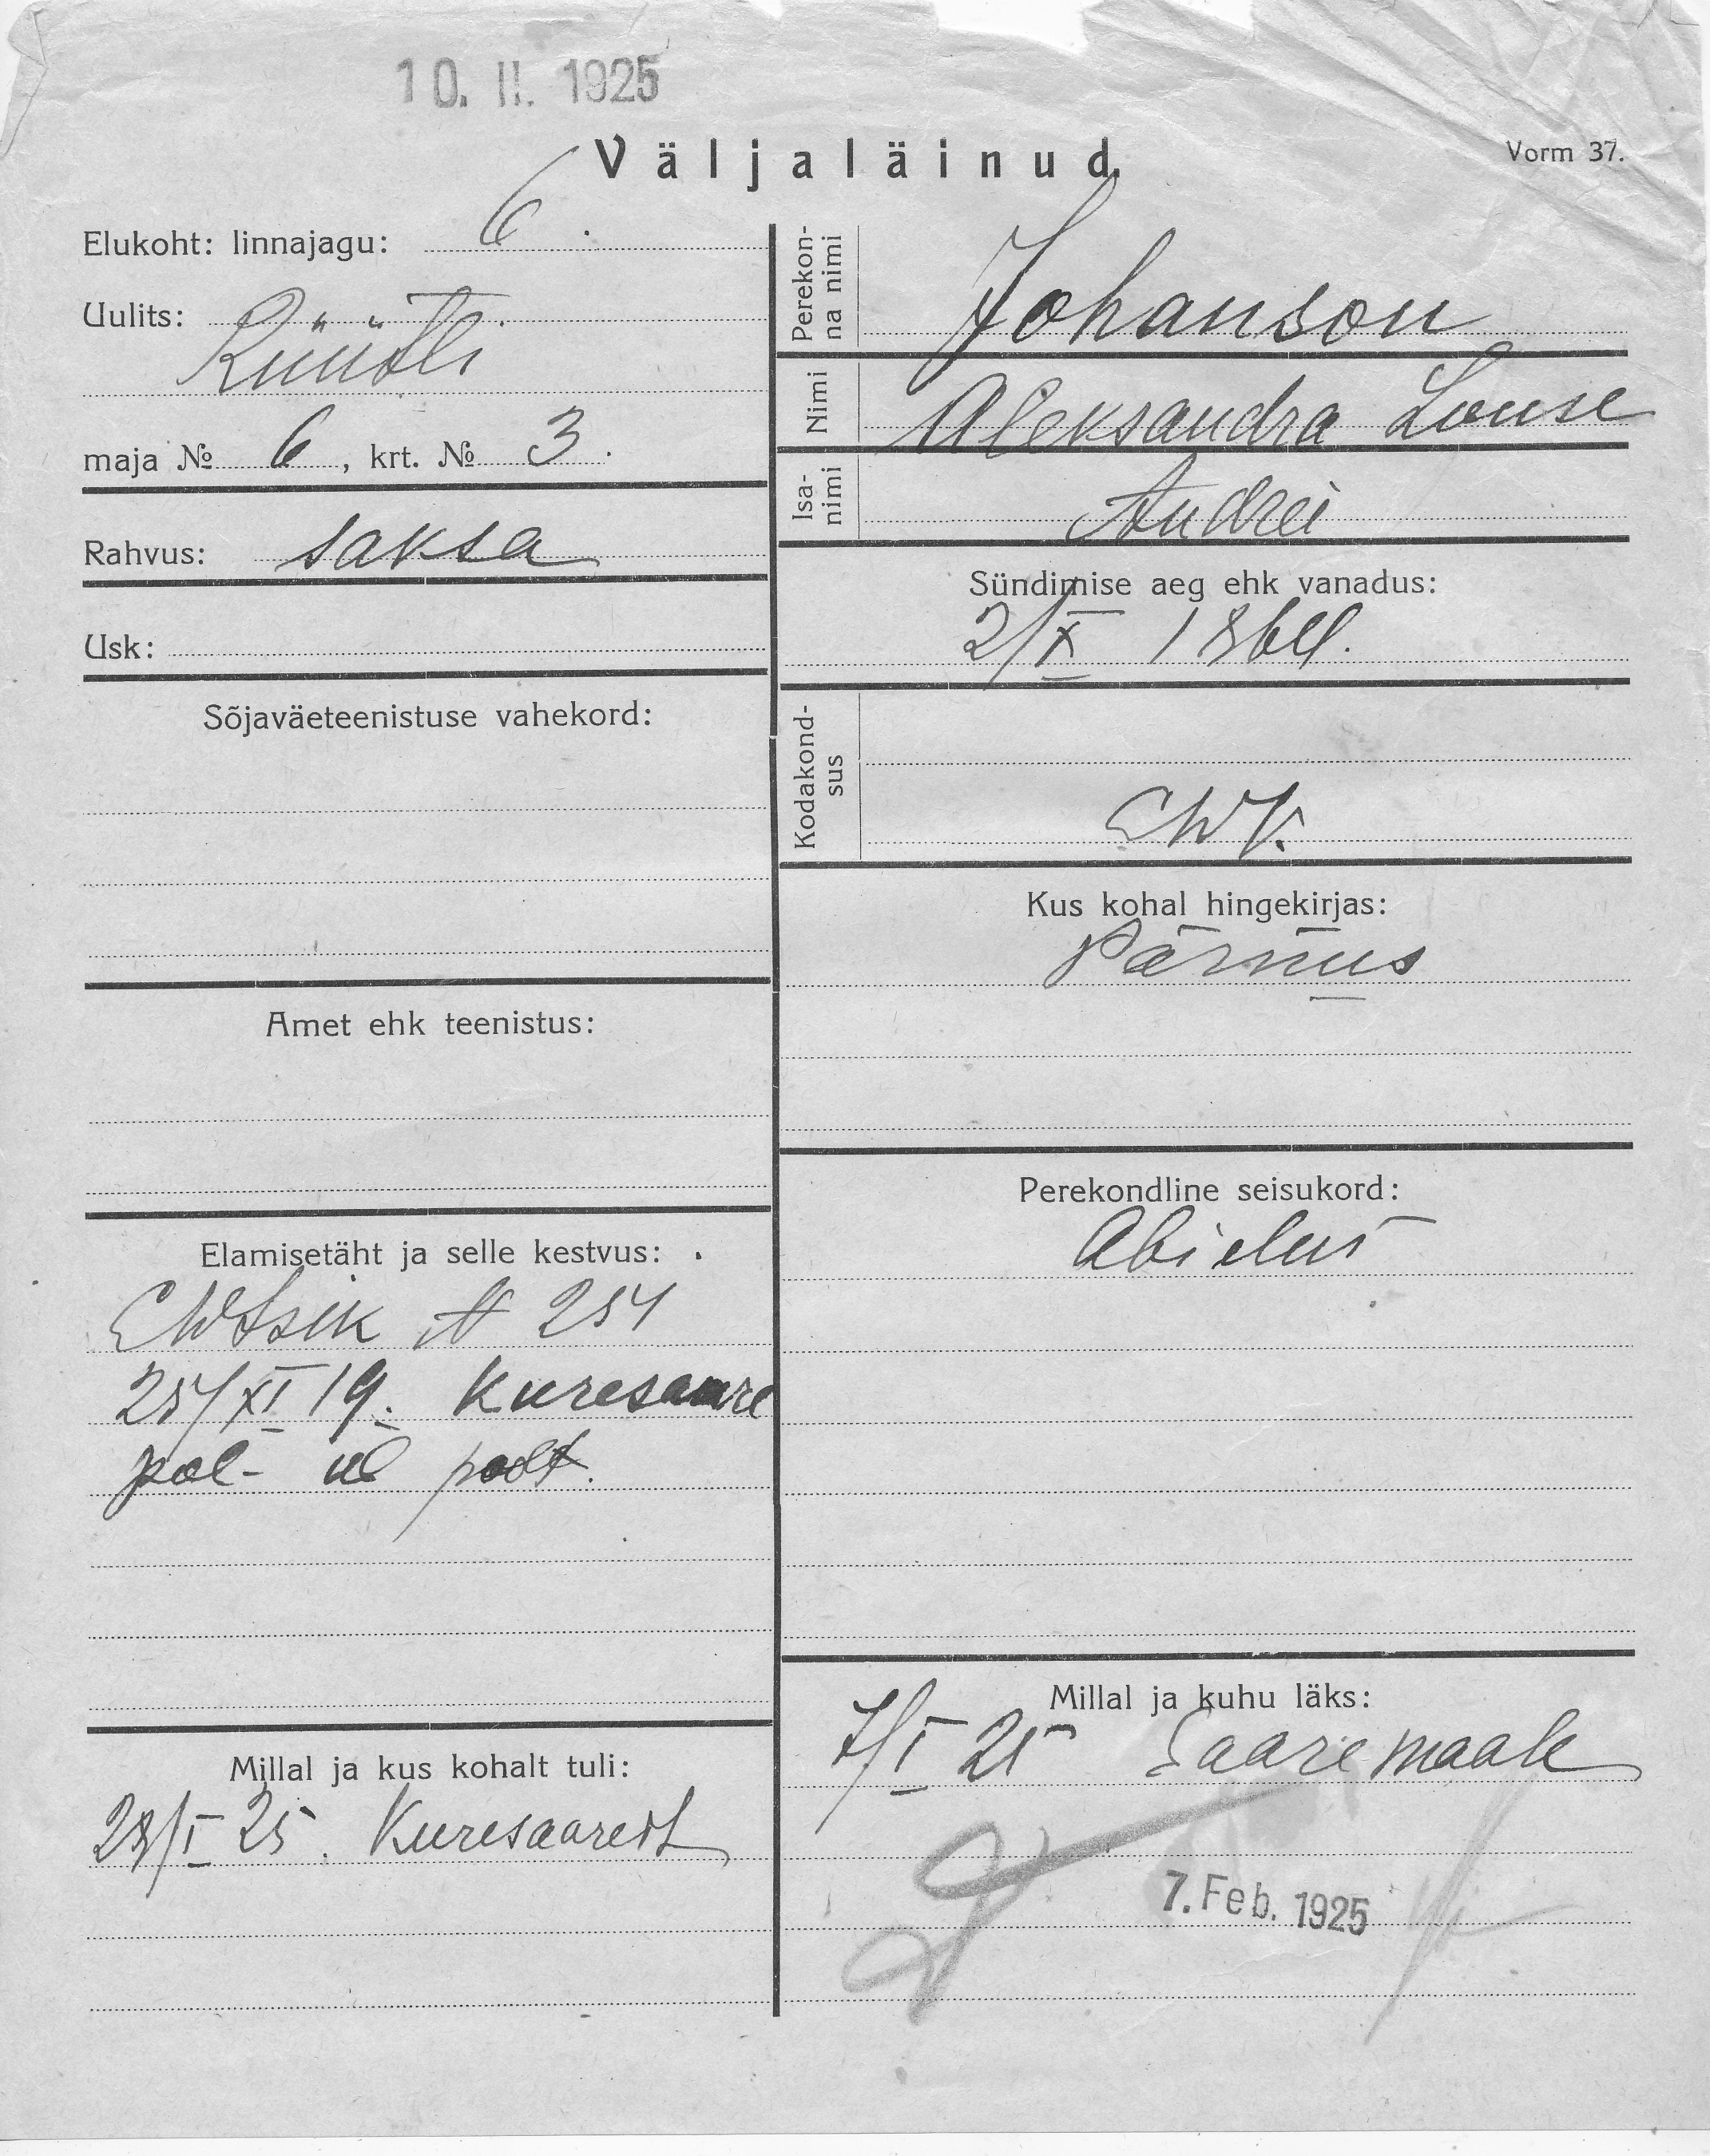 10. II. 1925
Väljaläinud.
Vorm 37.
Elukoht: linnajagu: 6.
Uulits: Rüütli
maja № 6, krt. № 3.
Rahvus: saksa
Usk:
Sõjaväeteenistuse vahekord:
Amet ehk teenistus:
Elamisetäht ja selle kestvus:
N 254
25/XI 19. Kuresaare
pol- ül poolt.
Millal ja kus kohalt tuli:
28/I 25. Kuresaarest
Perekonna nimi
Johanson
Nimi
Aleksandra Louise
Isanimi
Andrei
Sündimise aeg ehk vanadus:
2/X
Kodakondsus
EWV.
Kus kohal hingekirjas:
Pärnus
Perekondline seisukord:
Abielus
Millal ja kuhu läks:
25 Saaremaale
7. Feb. 1925